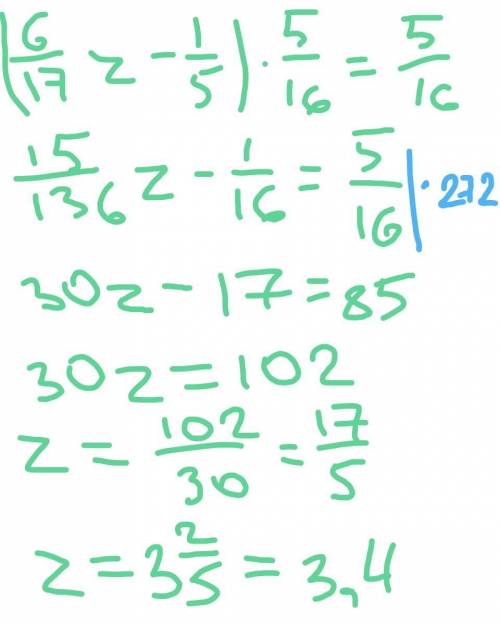 (6/17 z - 1/5) · 5/16 = 5/16
15/136 z - 1/16 = 5/16 | · 272
30z - 17 = 85
30z = 102
z = 102/30 = 17/5
z = 3 2/5 = 3,4